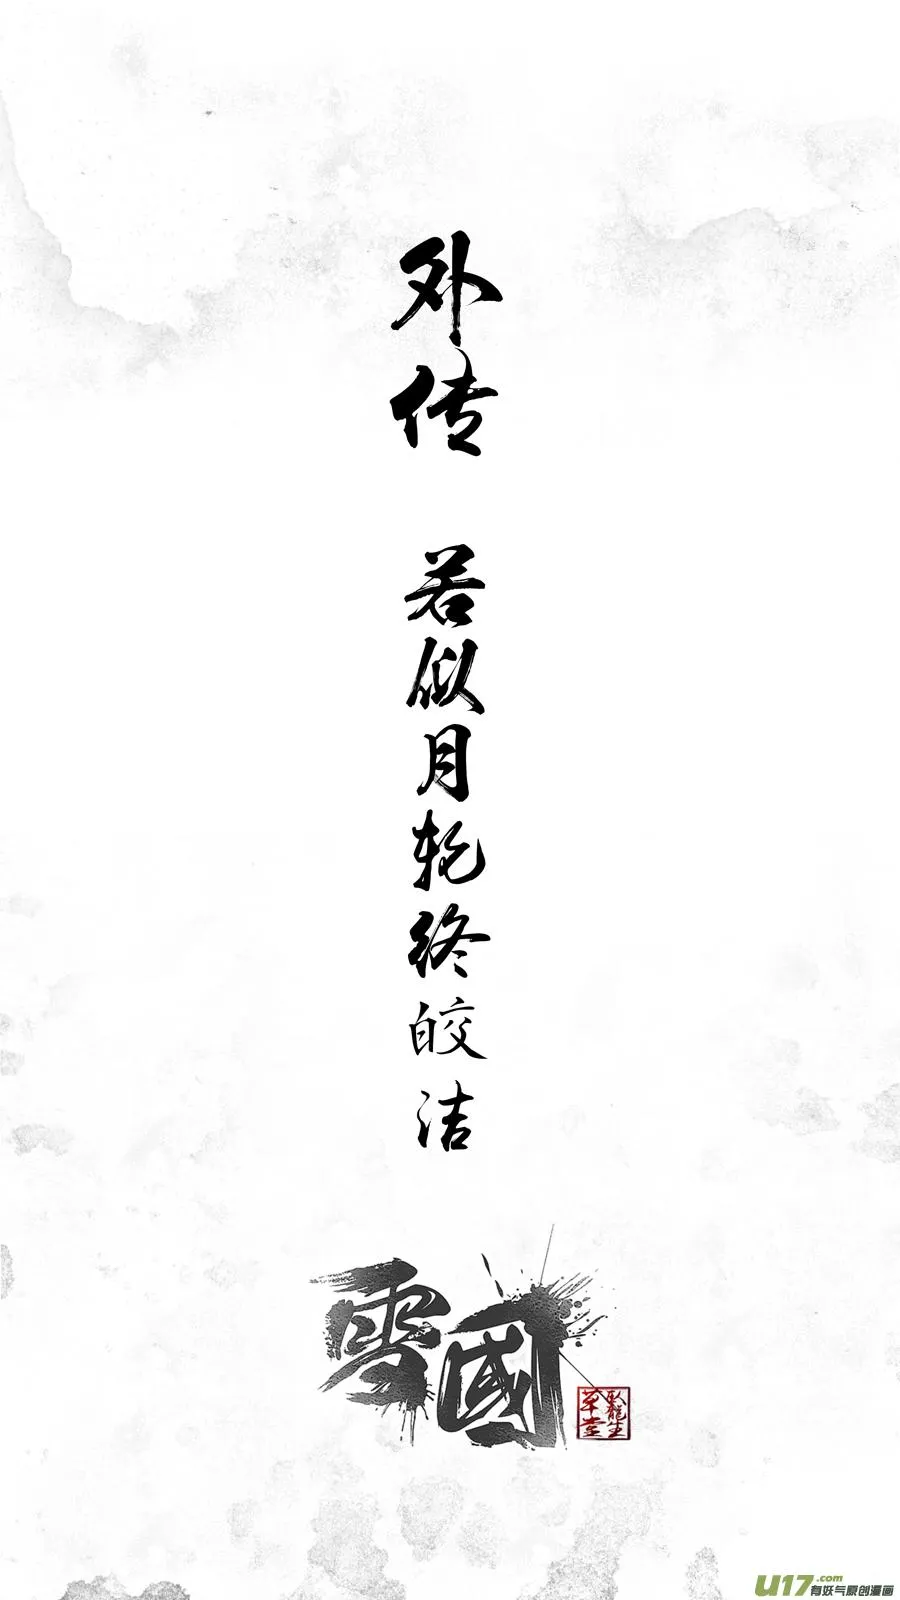 外传
若似月轮终皎洁
雪國
卧龍生
草堂
U17.com
有妖气原创漫画